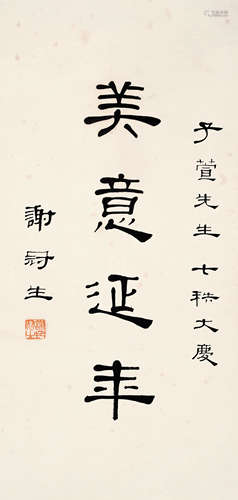 子萱先生七秩大慶
美意延年
謝冠生